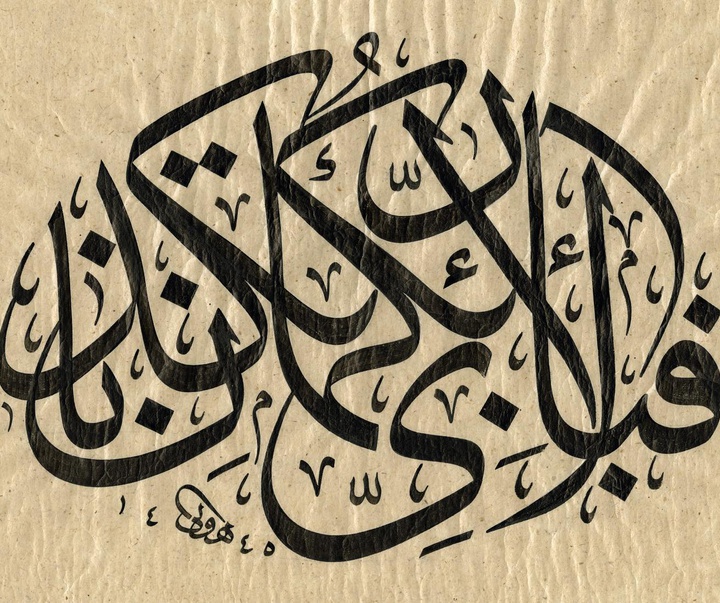 فَبِأَيِّ آلَاءِ رَبِّكُمَا تُكَذِّبَانِ
١٤٤٥